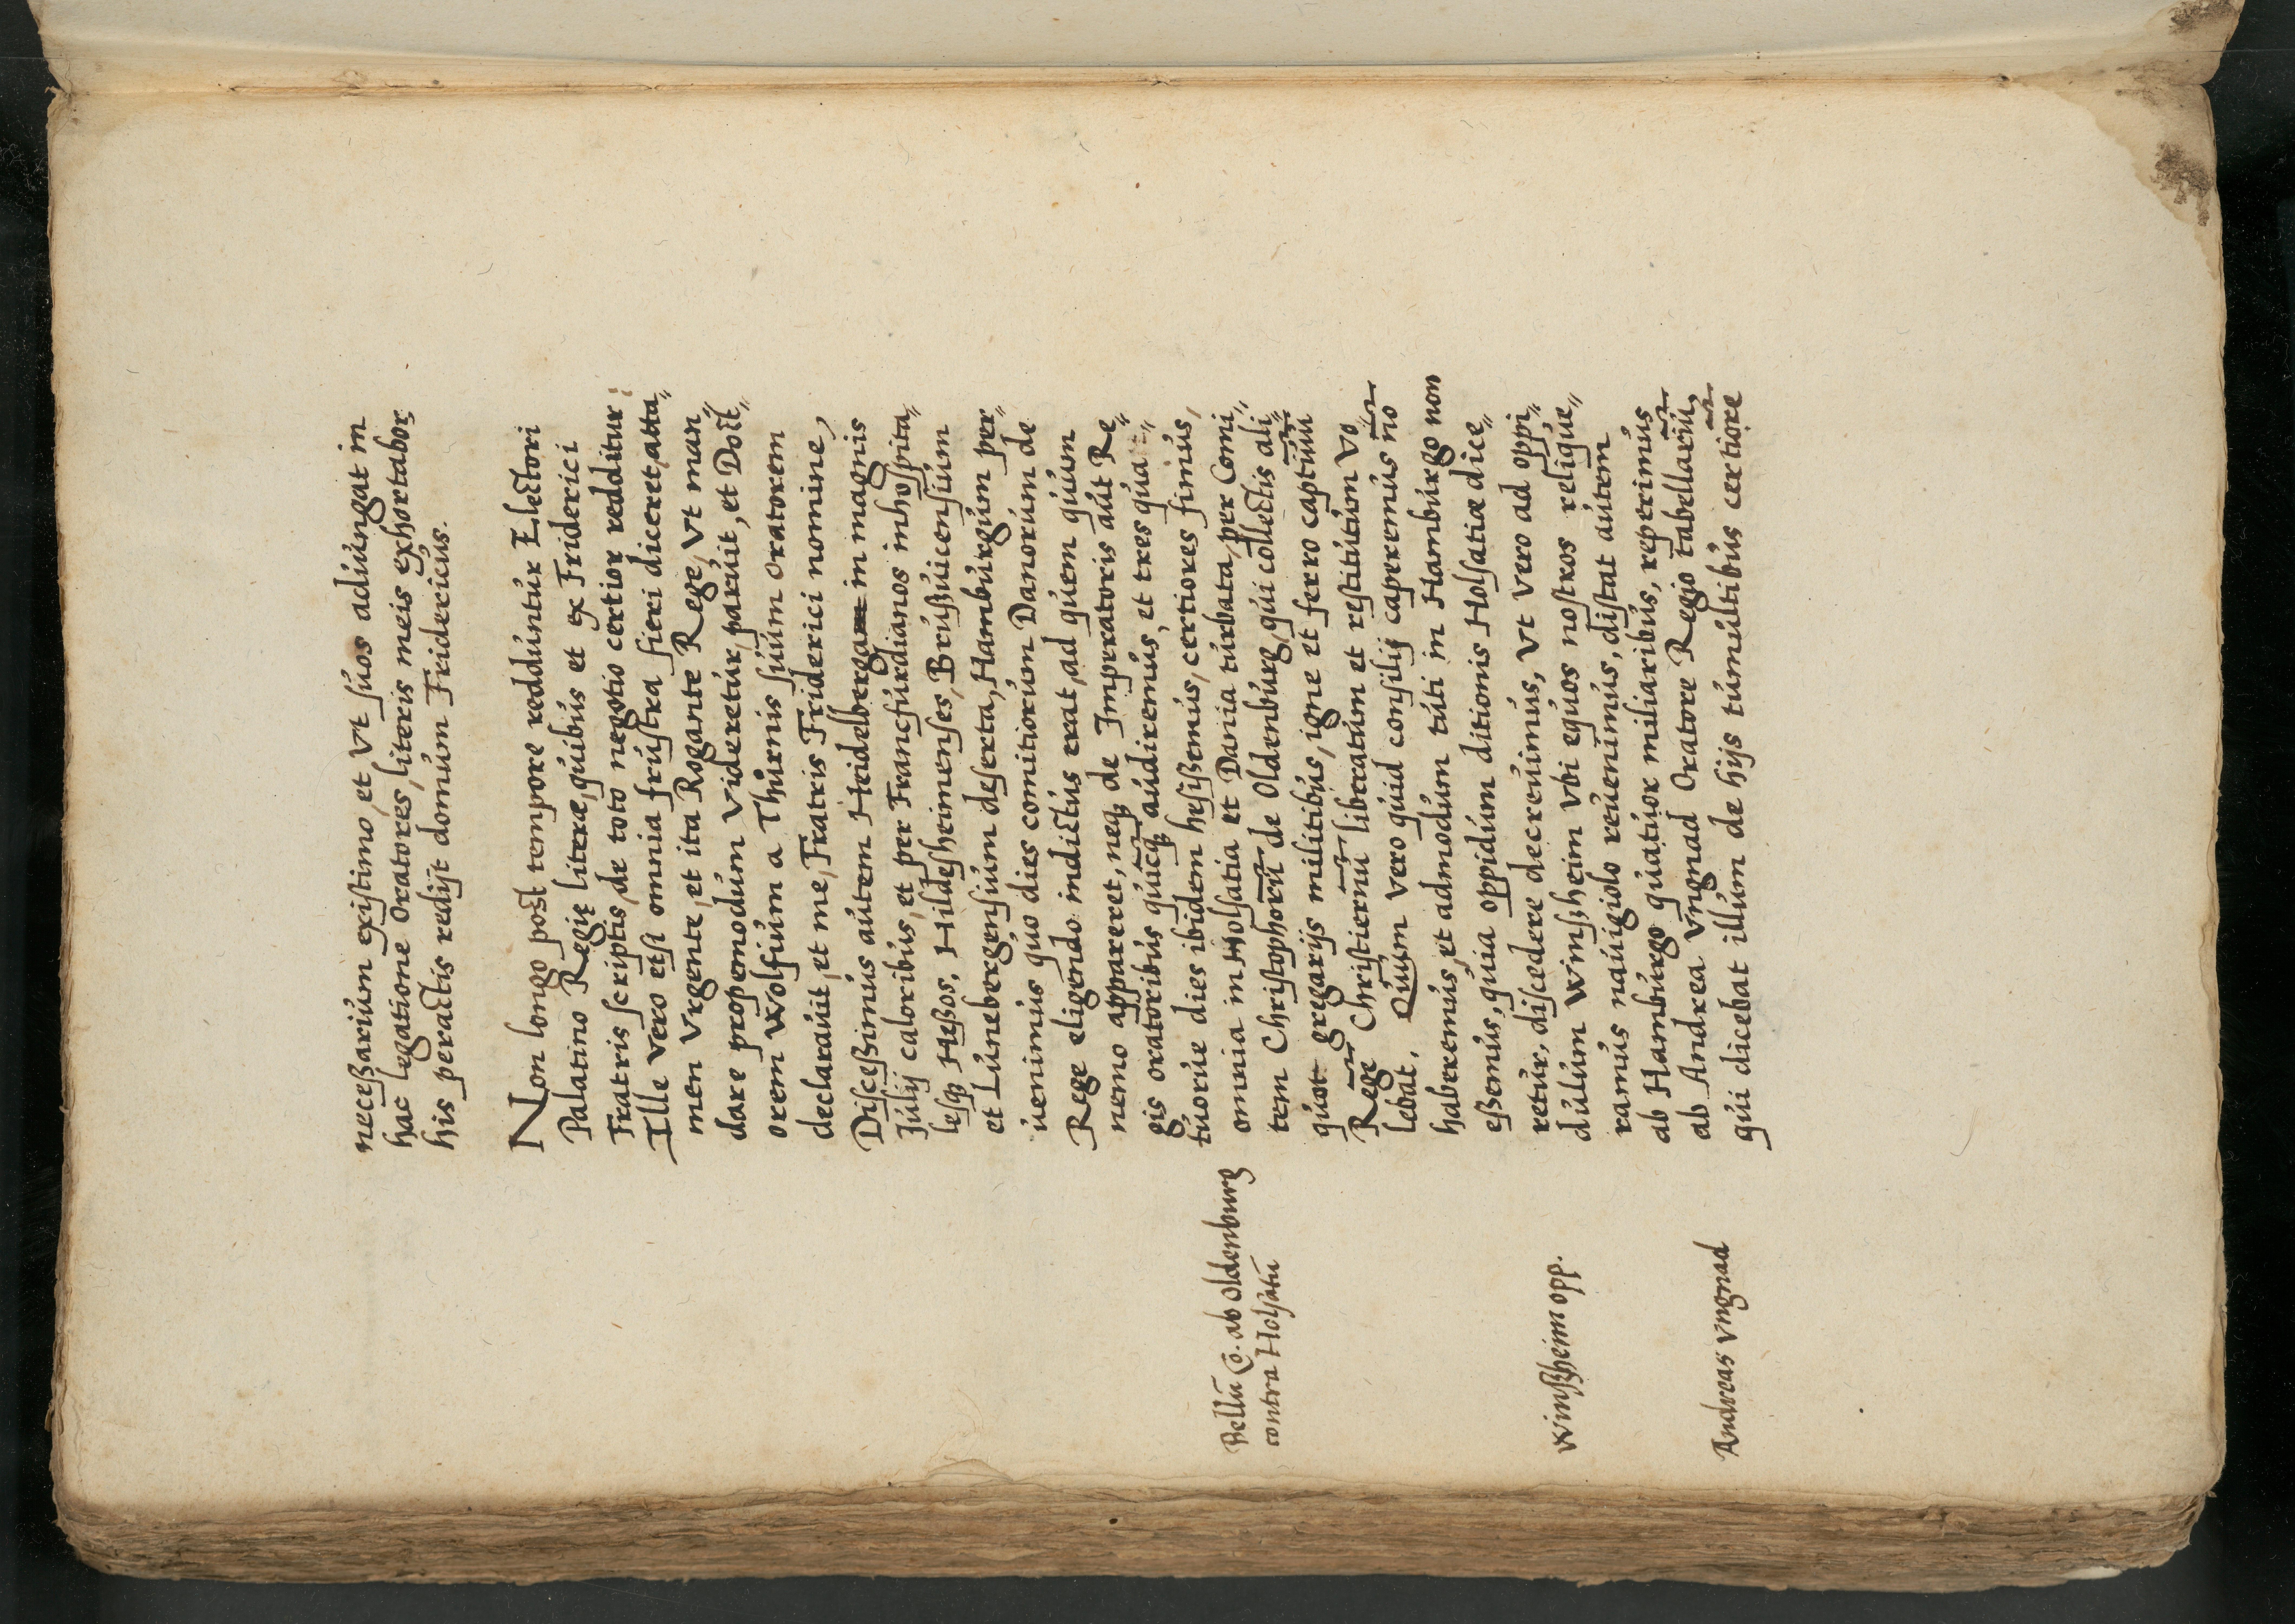 neceßariúm existimo, et Vt súos adiúngat in
hac legatione Oratores, literis meis exhortabor.
his peractis redijt domúm Fridericús.
Non longo post tempore reddúntúr Electori
Palatino Regię literæ, qúibús et ex Friderici
Fratris scriptis, de toto negotio certior redditur:
Ille vero etsi omnia frústra fieri diceret, atta„
men Vrgente, et ita Rogante Rege, Vt man„
dare propemodúm Videretúr, parúit, et Doct„
orem Wolfiúm a Thúrnis súúm oratorem
declaraúit, et me, Fratris Friderici nomine,
Disceßimús aútem Heidelberga in magnis
Júlij caloribús, et per Francfúrdianos inhospita„
lesqꝫ Heßos, Hildesheimenses, Brúßúicensiúm
et Lúnebergensiúm deserta, Hambúrgúm per„
úenimús qúo dies comitiorúm Danorúm de
Rege eligendo indictús erat, ad qúem qúúm
nemo appareret, neqꝫ de Imperatoris aút Re„
gis oratoribús qúicqꝫ aúdiremús, et tres qúa„
túorúe dies ibidem hesißemús, certiores fimús,
omnia in Holsatia et Dania túrbata, per Comi„
tem Christophorū de Oldenbúrg, qúi collectis ali„
qúot gregarijs militibús, igne et ferro captiúū
Rege Christiernū liberatúm et restitútúm Vo„
lebat. Qúúm vero qúid consilij caperemús nō
haberemús, et admodúm túti in Hambúrgo non
eßemús, qúia oppidúm ditionis Holsatiæ dice„
retúr, discedere decreúimús, Vt Vero ad oppi„
dúlúm Winßheim Vbi eqúos nostros reliqúe„
ramús naúigiolo reúenimús, distat aútem
ab Hambúrgo qúatúor miliaribús, reperimús
ab Andrea Vngnad Oratore Regio tabellariū,
qúi dicebat illúm de hijs túmúltibús certiorē
Bellū Cō. ab Oldenburg
contra Holsatū
Winßheim opp.
Andreas Vngnad